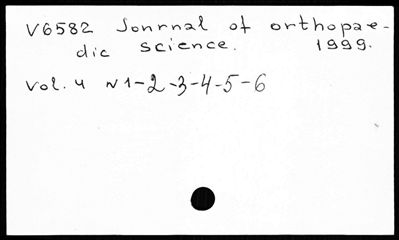 V6582 Jonrnal of orthopae-
dic science. 1999.
vol. 4 N 1-2-3-4-5-6